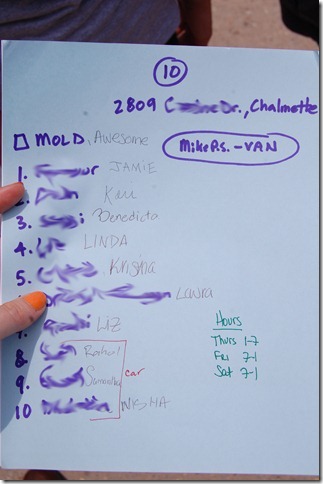 10
2809 Dr., Chalmette
MOLD, Awesome
Mike Rs. - VAN
1. JAMIE
2. Kari
3. Benedicta
4. LINDA
5. Krisma
Laura
7. LIZ
8. Rahul
9. Samantha
car
10
Hours
Thurs 1-7
Fri 7-1
Sat 7-1